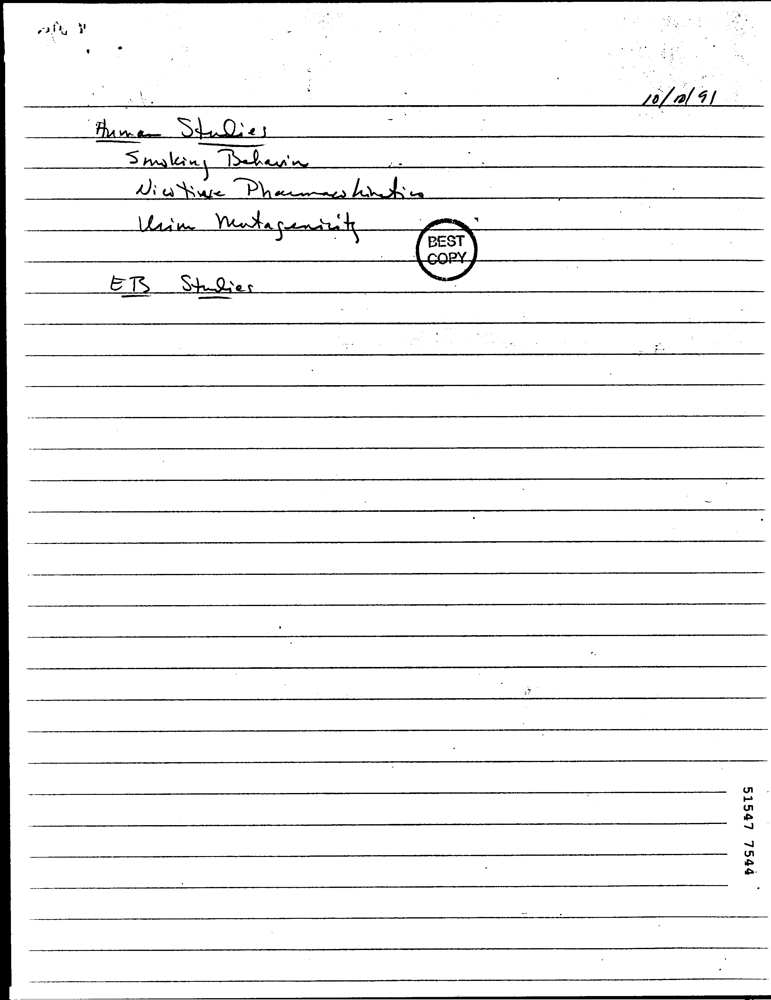 10/10/91
Human Studies
Smoking Behavior
Nicotine Pharmacokinetics
Urine Mutagenicity
BEST
COPY
ETS Studies
51547 7544